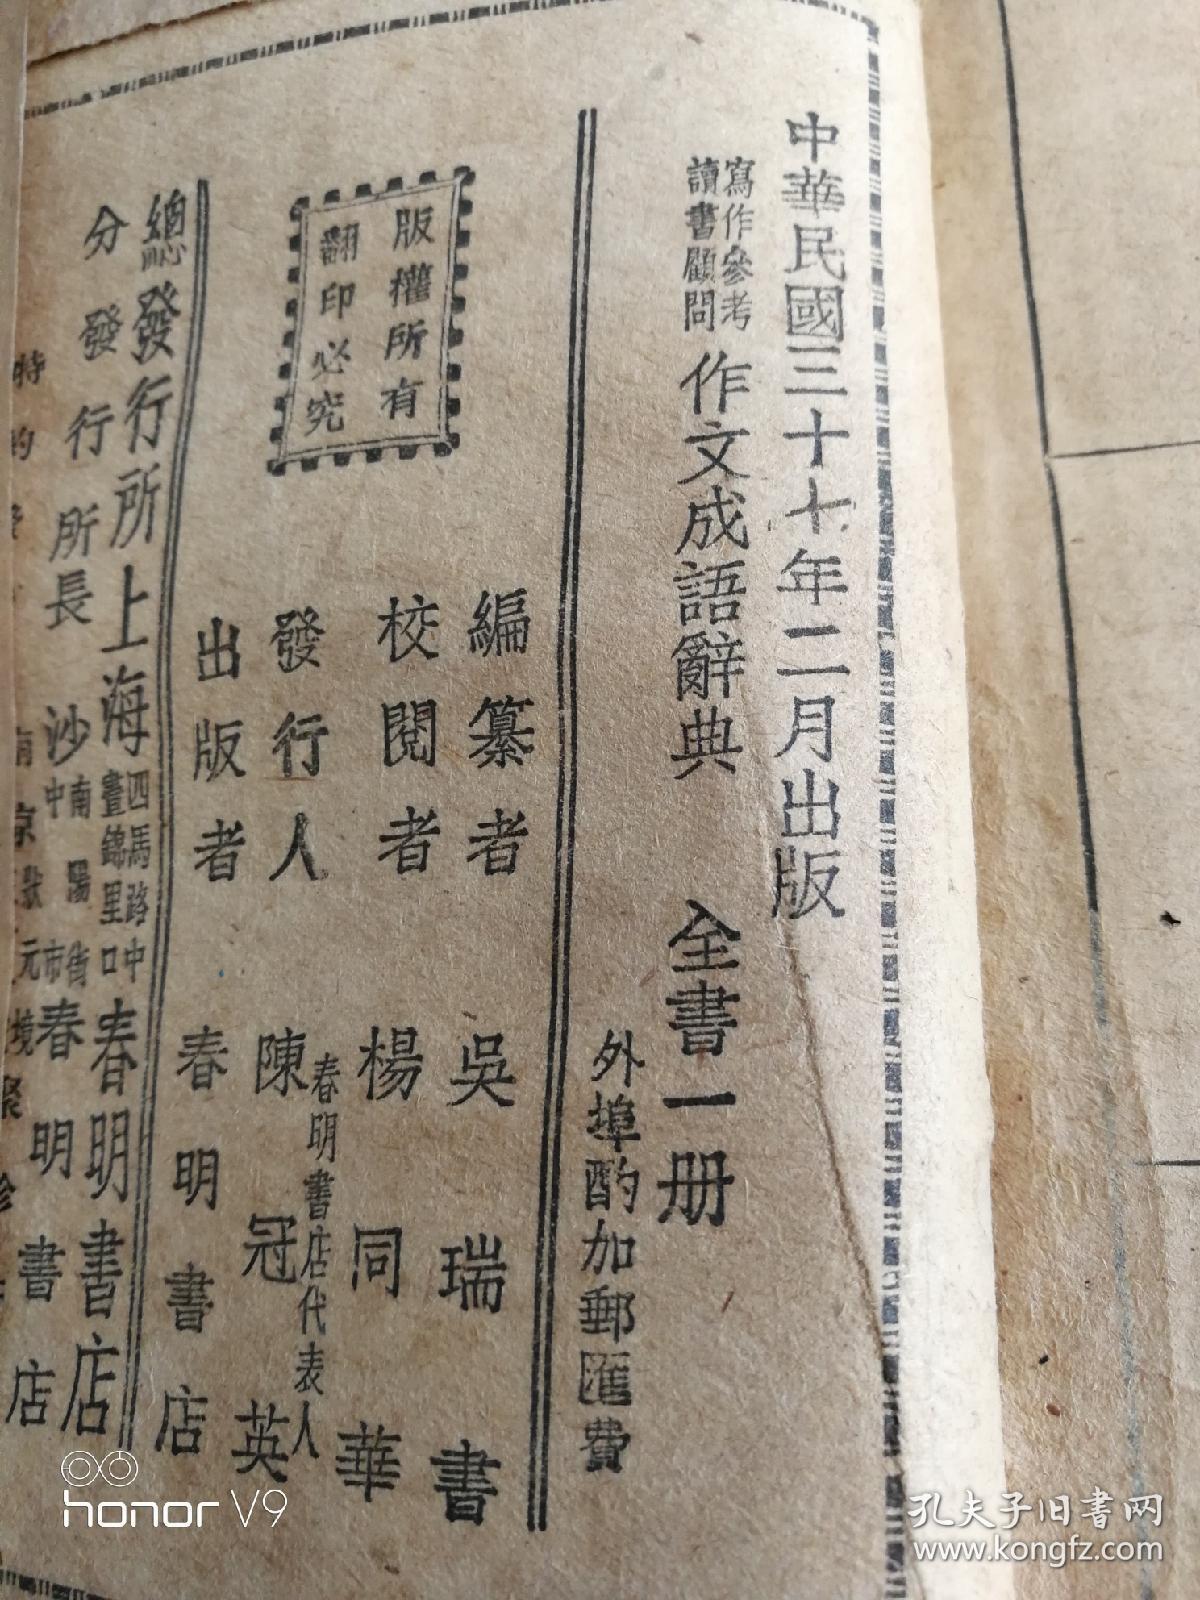 中華民國三十七年二月出版
寫作參考
讀書顧問
作文成語辭典 全書一册
外埠酌加郵匯費
編纂者 吳瑞書
校閱者 楊同華
發行人 春明書店代表人 陳冠英
出版者 春明書店
版權所有
翻印必究
總發行所 上海 四馬路中 晝錦里口 春明書店
分發行所 長沙 南陽街 中市 春明書店
特約
南京 元境
honor V9
孔夫子旧书网
www.kongfz.com